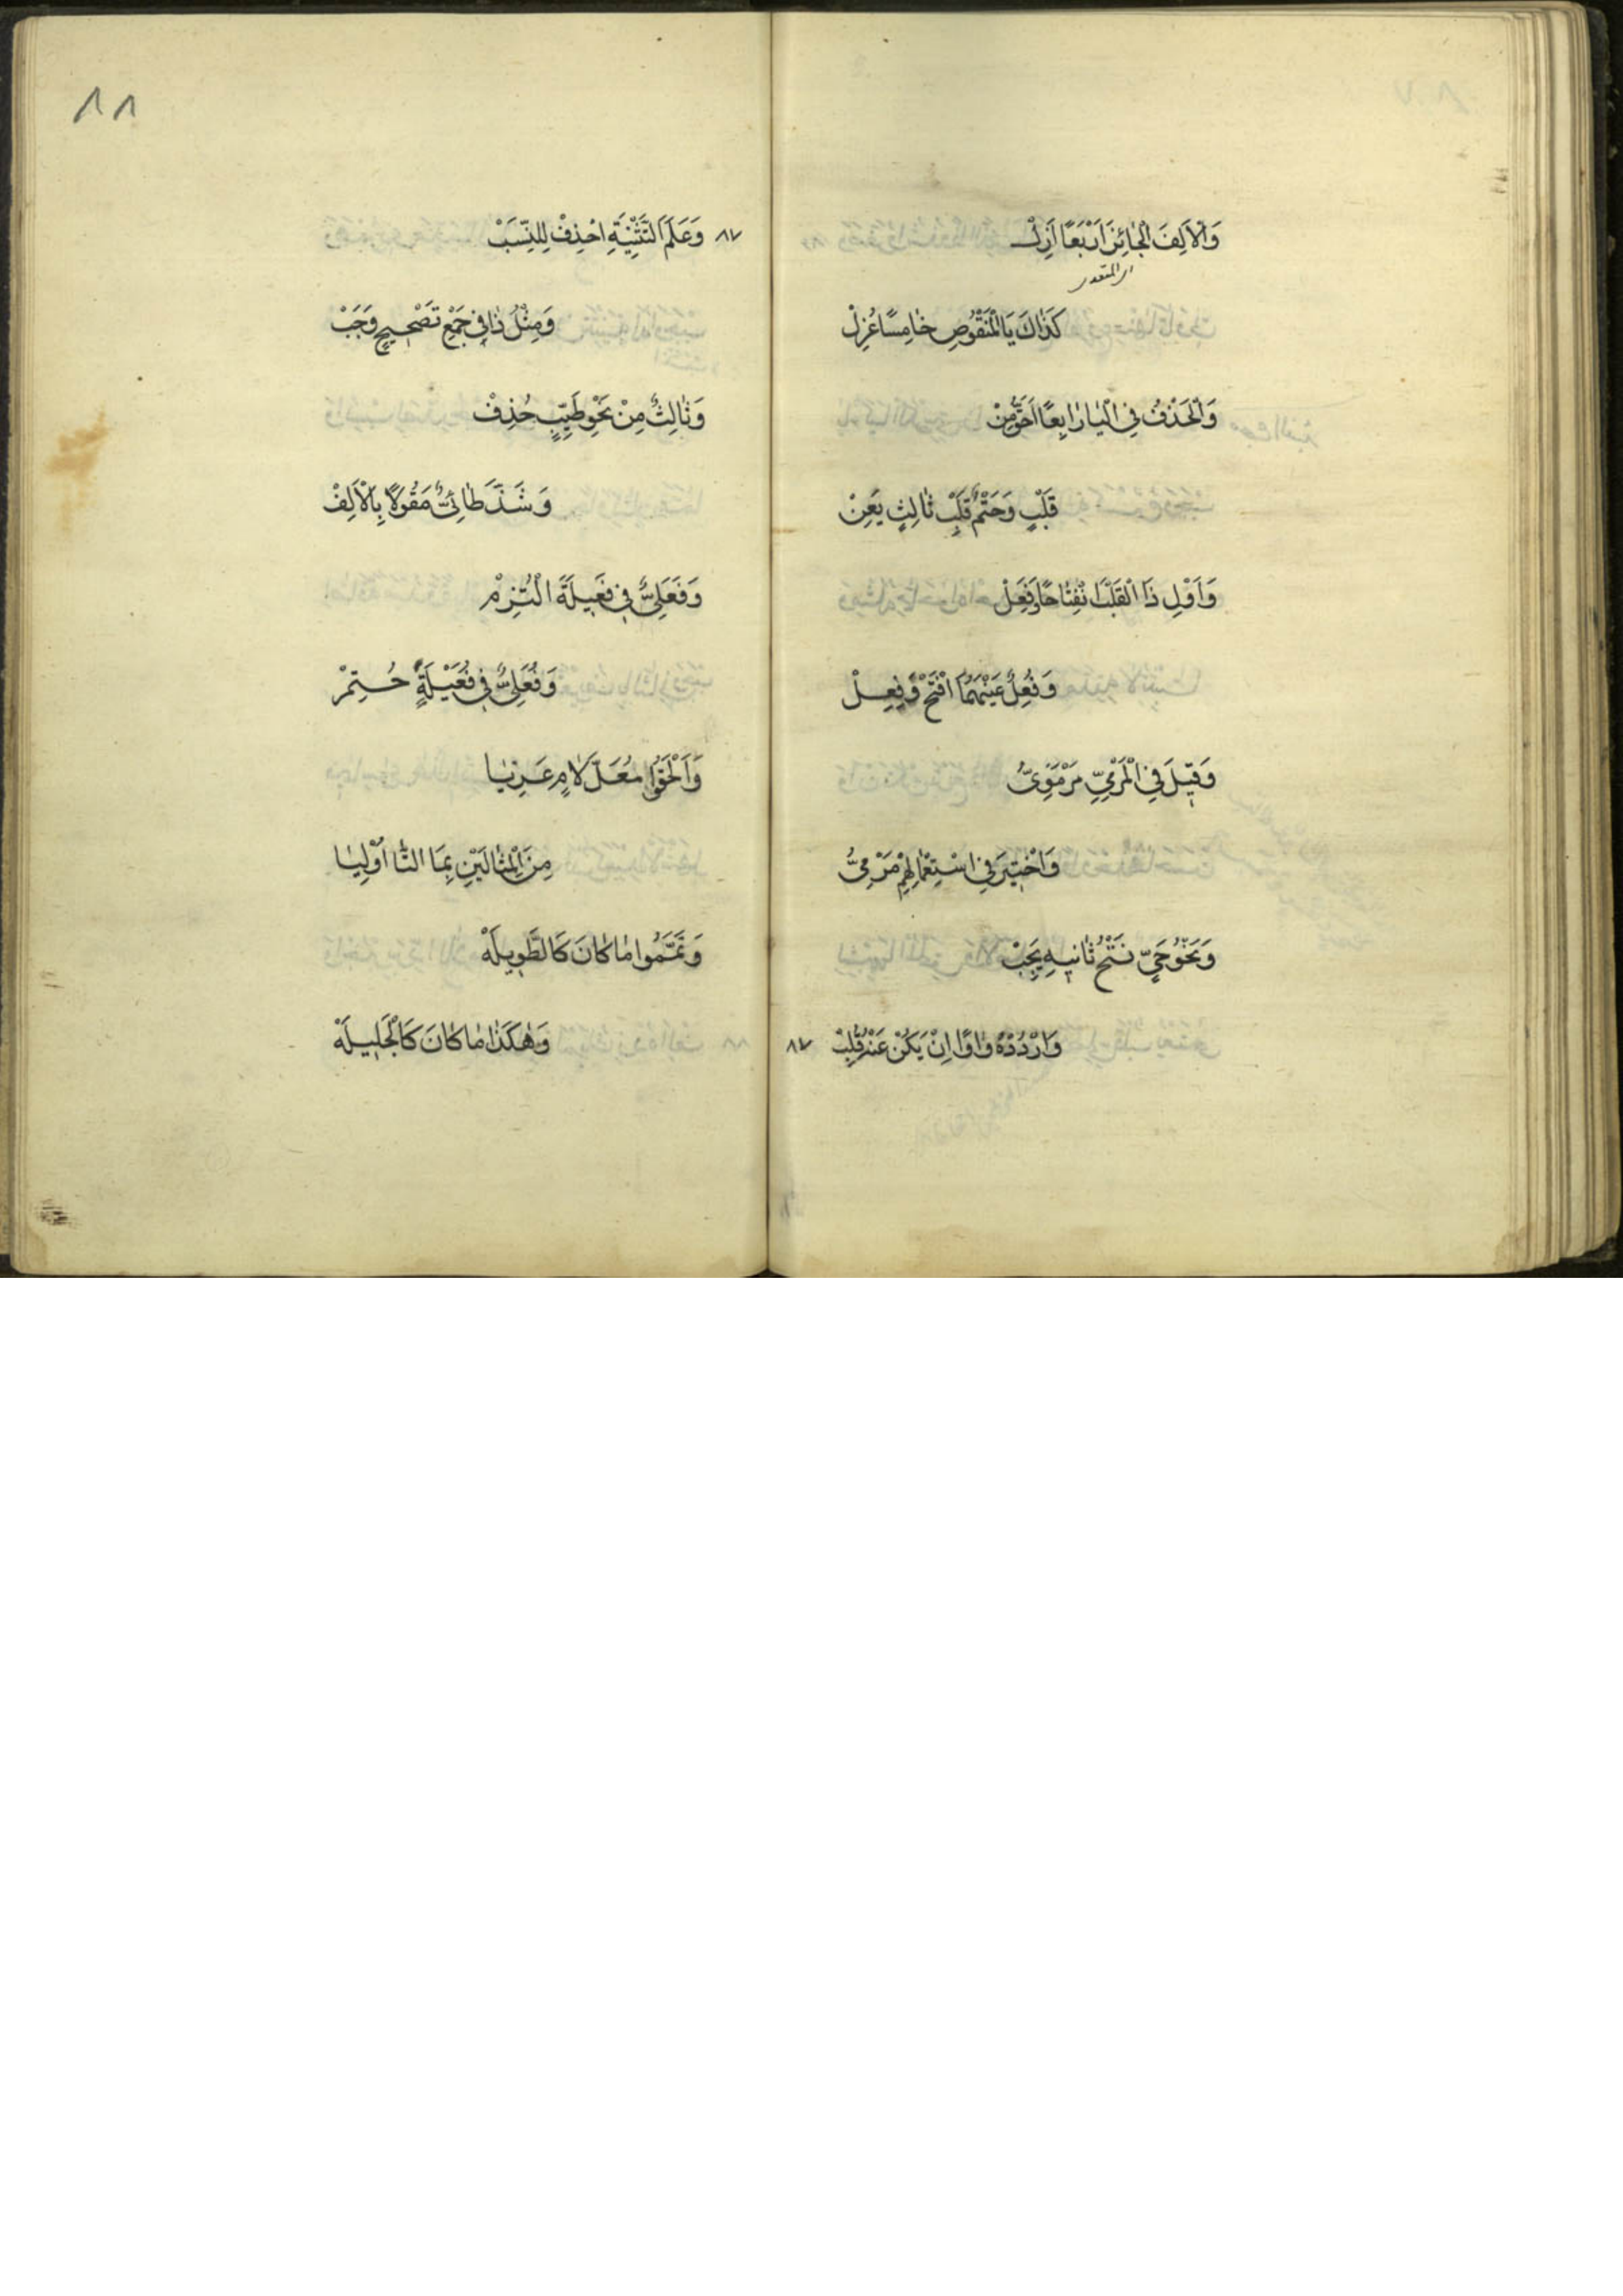 وَالْاَلِفَ الْجَائِزَ اَرْبَعًا اَزِلْ
كَذَاكَ يَا الْمَنْقُوصِ خَامِسًا عُزِلْ
وَالْحَذْفُ فِي الْيَا رَابِعًا اَحَقُّ مِنْ
قَلْبٍ وَحَتْمٌ قَلْبُ ثَالِثٍ يَعِنْ
وَاَوْلِ ذَا الْقَلْبِ انْفِتَاحًا وَفَعِلْ
وَفُعِلٌ عَيْنَهُمَا افْتَحْ وَفِعِلْ
وَقِيلَ فِي الْمَرْمِيِّ مَرْمَوِيُّ
وَاخْتِيرَ فِي اسْتِعْمَالِهِمْ مَرْمِيُّ
وَنَحْوُ حَيٍّ فَتْحُ ثَانِيهِ يَجِبْ
وَارْدُدْهُ وَاوًا اِنْ يَكُنْ عَنْهُ قُلِبْ
٨٧
٨٨
٨٧
وَعَلَمَ التَّثْنِيَةِ احْذِفْ لِلنَّسَبْ
وَمِثْلُ ذَا فِي جَمْعِ تَصْحِيحٍ وَجَبْ
وَثَالِثٌ مِنْ نَحْوِ طَيِّبٍ حُذِفْ
وَشَذَّ طَائِيٌّ مَقُولًا بِالْاَلِفْ
وَفَعَلِيٌّ فِي فَعِيلَةَ الْتُزِمْ
وَفُعَلِيٌّ فِي فُعَيْلَةٍ حُتِمْ
وَاَلْحَقُوا مُعَلَّ لَامٍ عَرِيَا
مِنَ الْمِثَالَيْنِ بِمَا التَّا اُوْلِيَا
وَتَمَّمُوا مَا كَانَ كَالطَّوِيلَهْ
وَهٰكَذَا مَا كَانَ كَالْجَلِيلَهْ